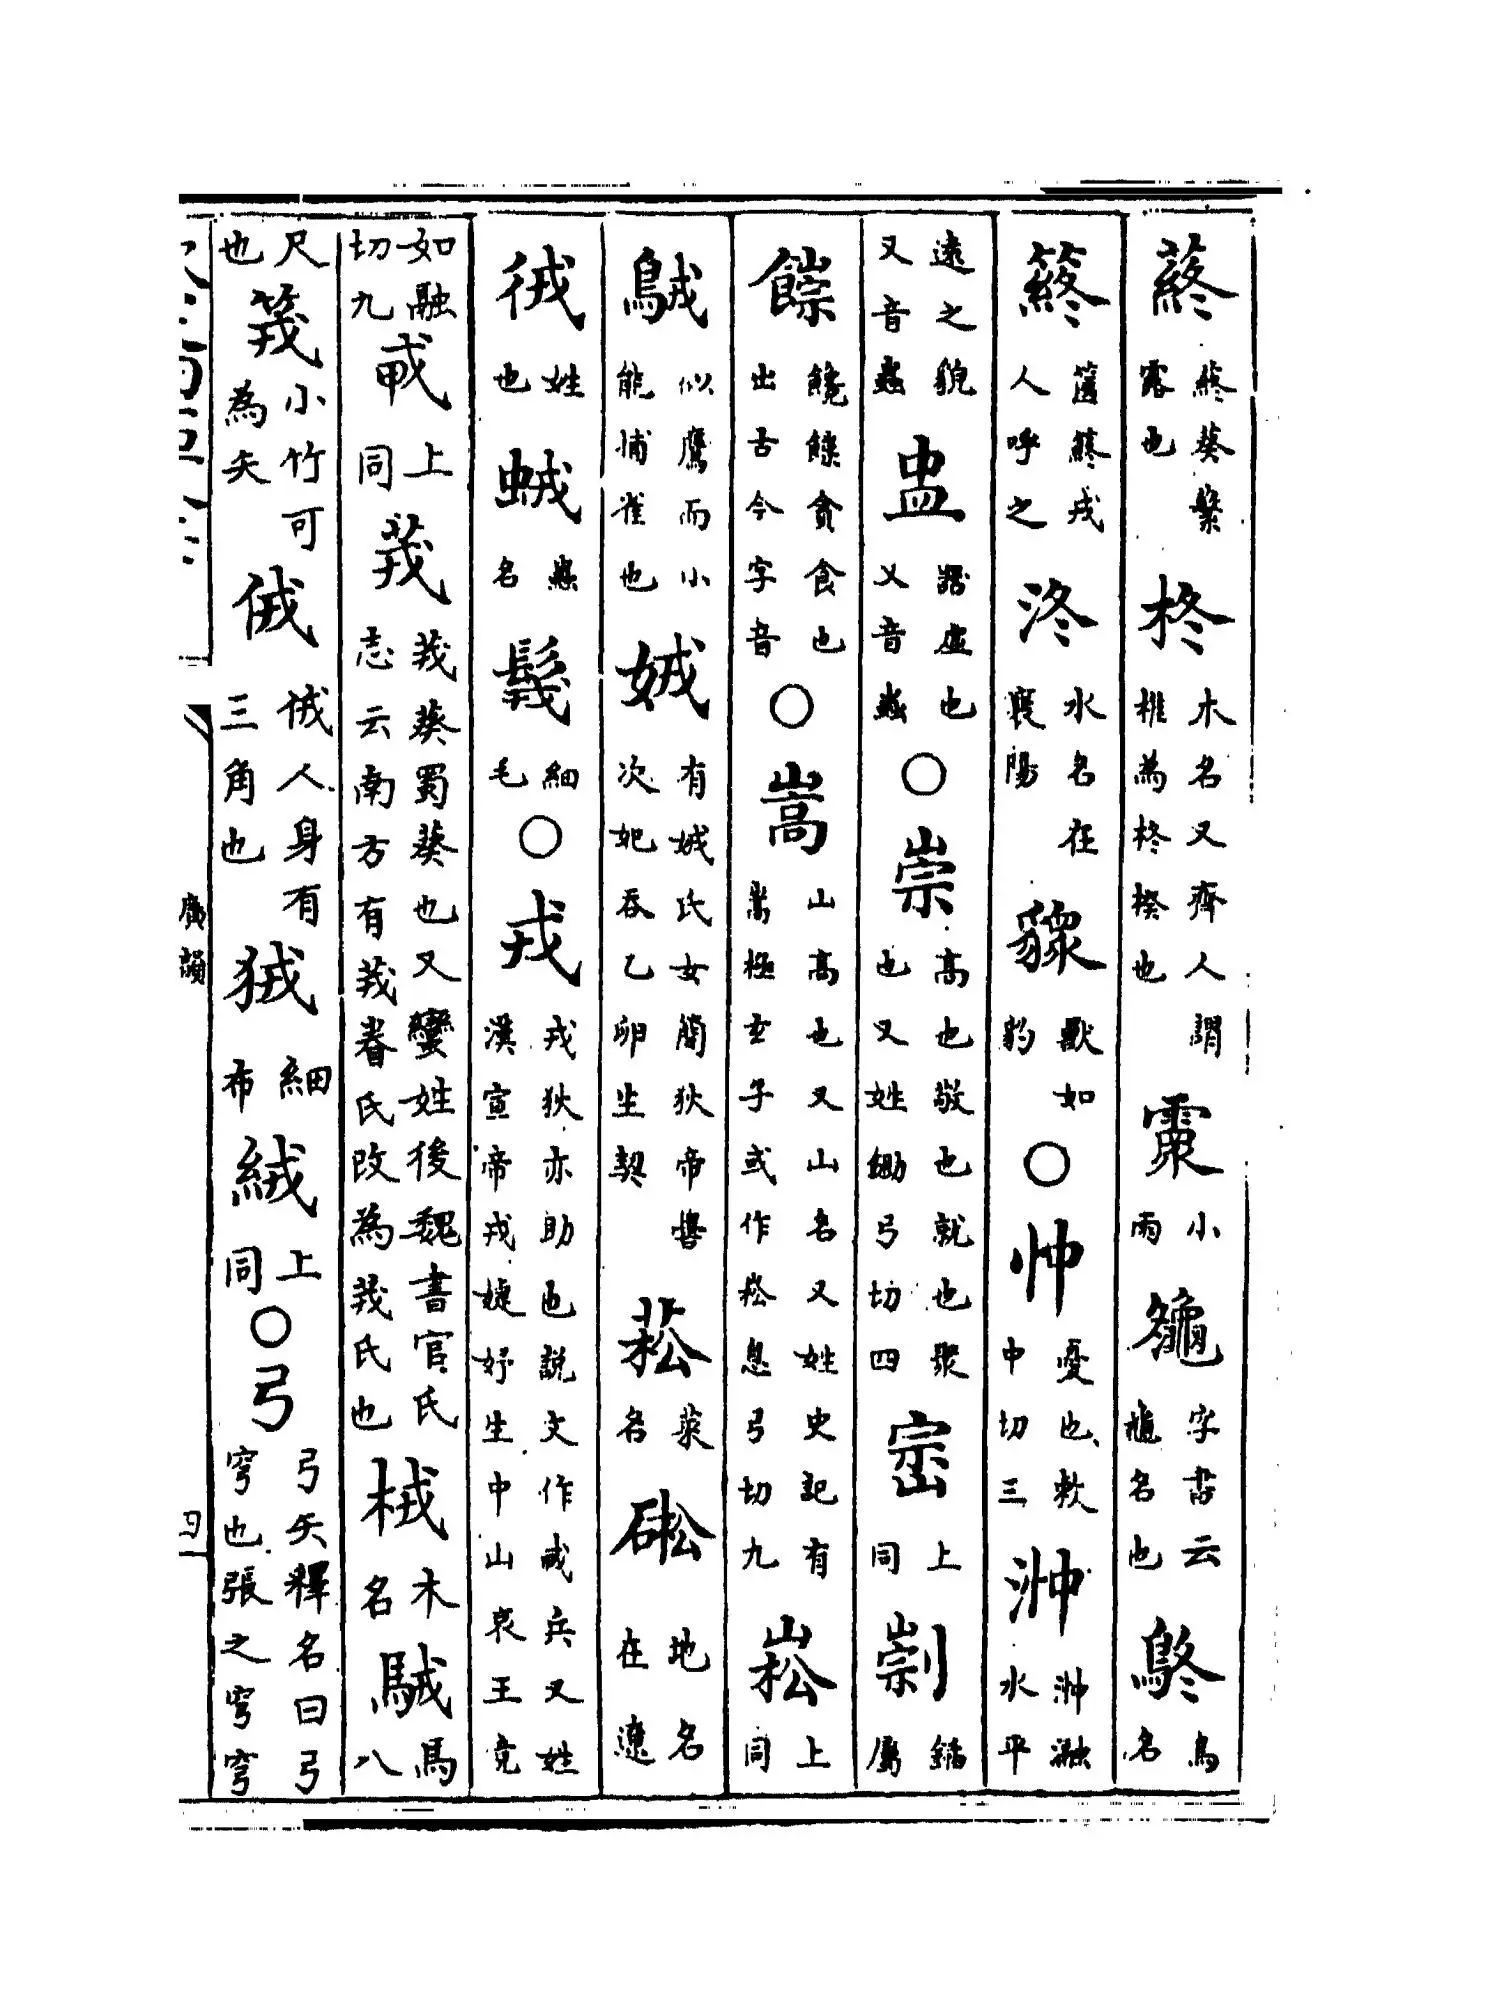 蔠蔠葵繁露也柊木名又齊人謂椎為柊楑也䨎小雨䶱字書云䶱名也鴤鳥名
䈺䈺戎人呼之泈水名在襄陽豵獸如豹○忡憂也敕中切三浺浺瀜水平
遠之貌又音蟲盅器虛也又音蟲○崇高也敬也就也聚也又姓鋤弓切四崈上同㓽鍤屬
䭥饞䭥貪食也出古今字音○嵩山高也又山名又姓史記有嵩極玄子或作崧息弓切九崧上同
䲨似鷹而小能捕雀也娀有娀氏女簡狄帝嚳次妃吞乙卵生契菘菜名硹地名在遼
㣑姓也䘬蟲名髶細毛○戎戎狄亦助也說文作𢦦兵又姓漢宣帝戎婕妤生中山哀王竟
如融切九𢦦上同茙茙葵蜀葵也又蠻姓後魏書官氏志云南方有茙眷氏改為茙氏也栻木名駥馬八
尺也䇯小竹可為矢㑙㑙人身有三角也狨細布絨上同○弓弓矢釋名曰弓穹也張之穹穹
廣韻